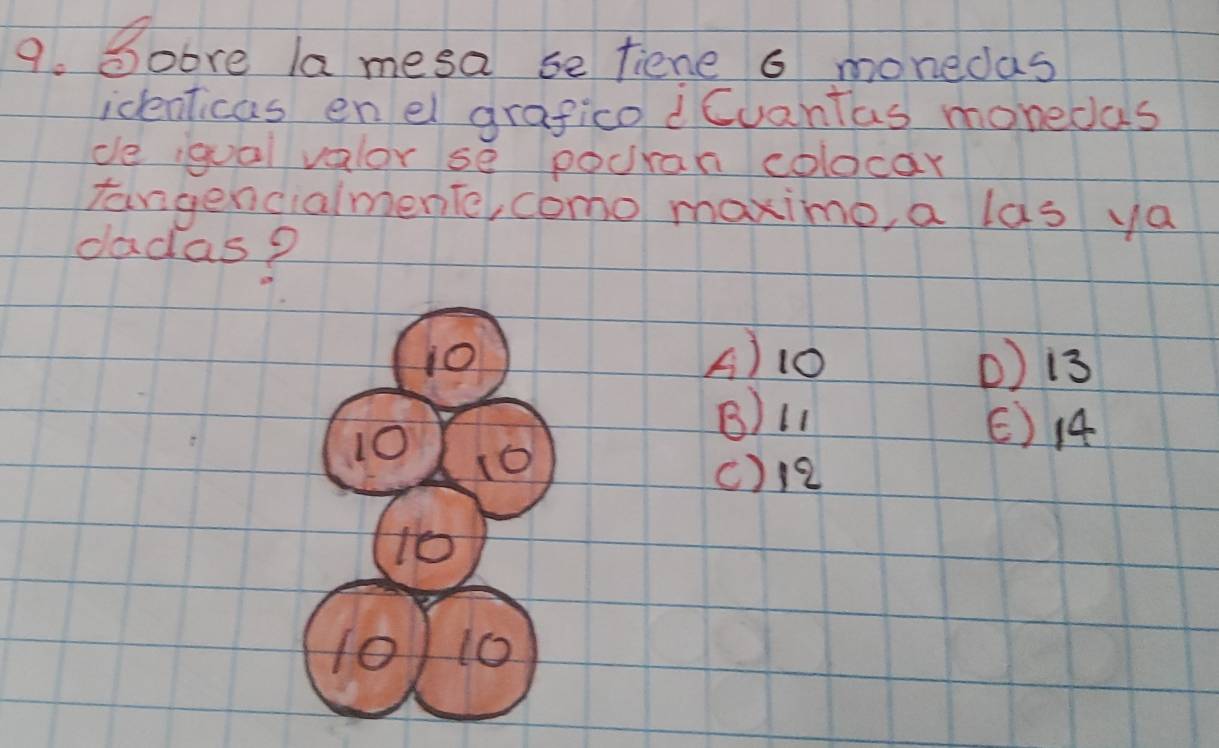 9. Sobre la mesa se tiene 6 monedas
identicas en el grafico ¿Cuantas monedas
de igual valor se podran colocar
tangencialmente, como maximo, a las ya
dadas?
10
10 10
10
10 10
A) 10
B) 11
C) 12
D) 13
E) 14